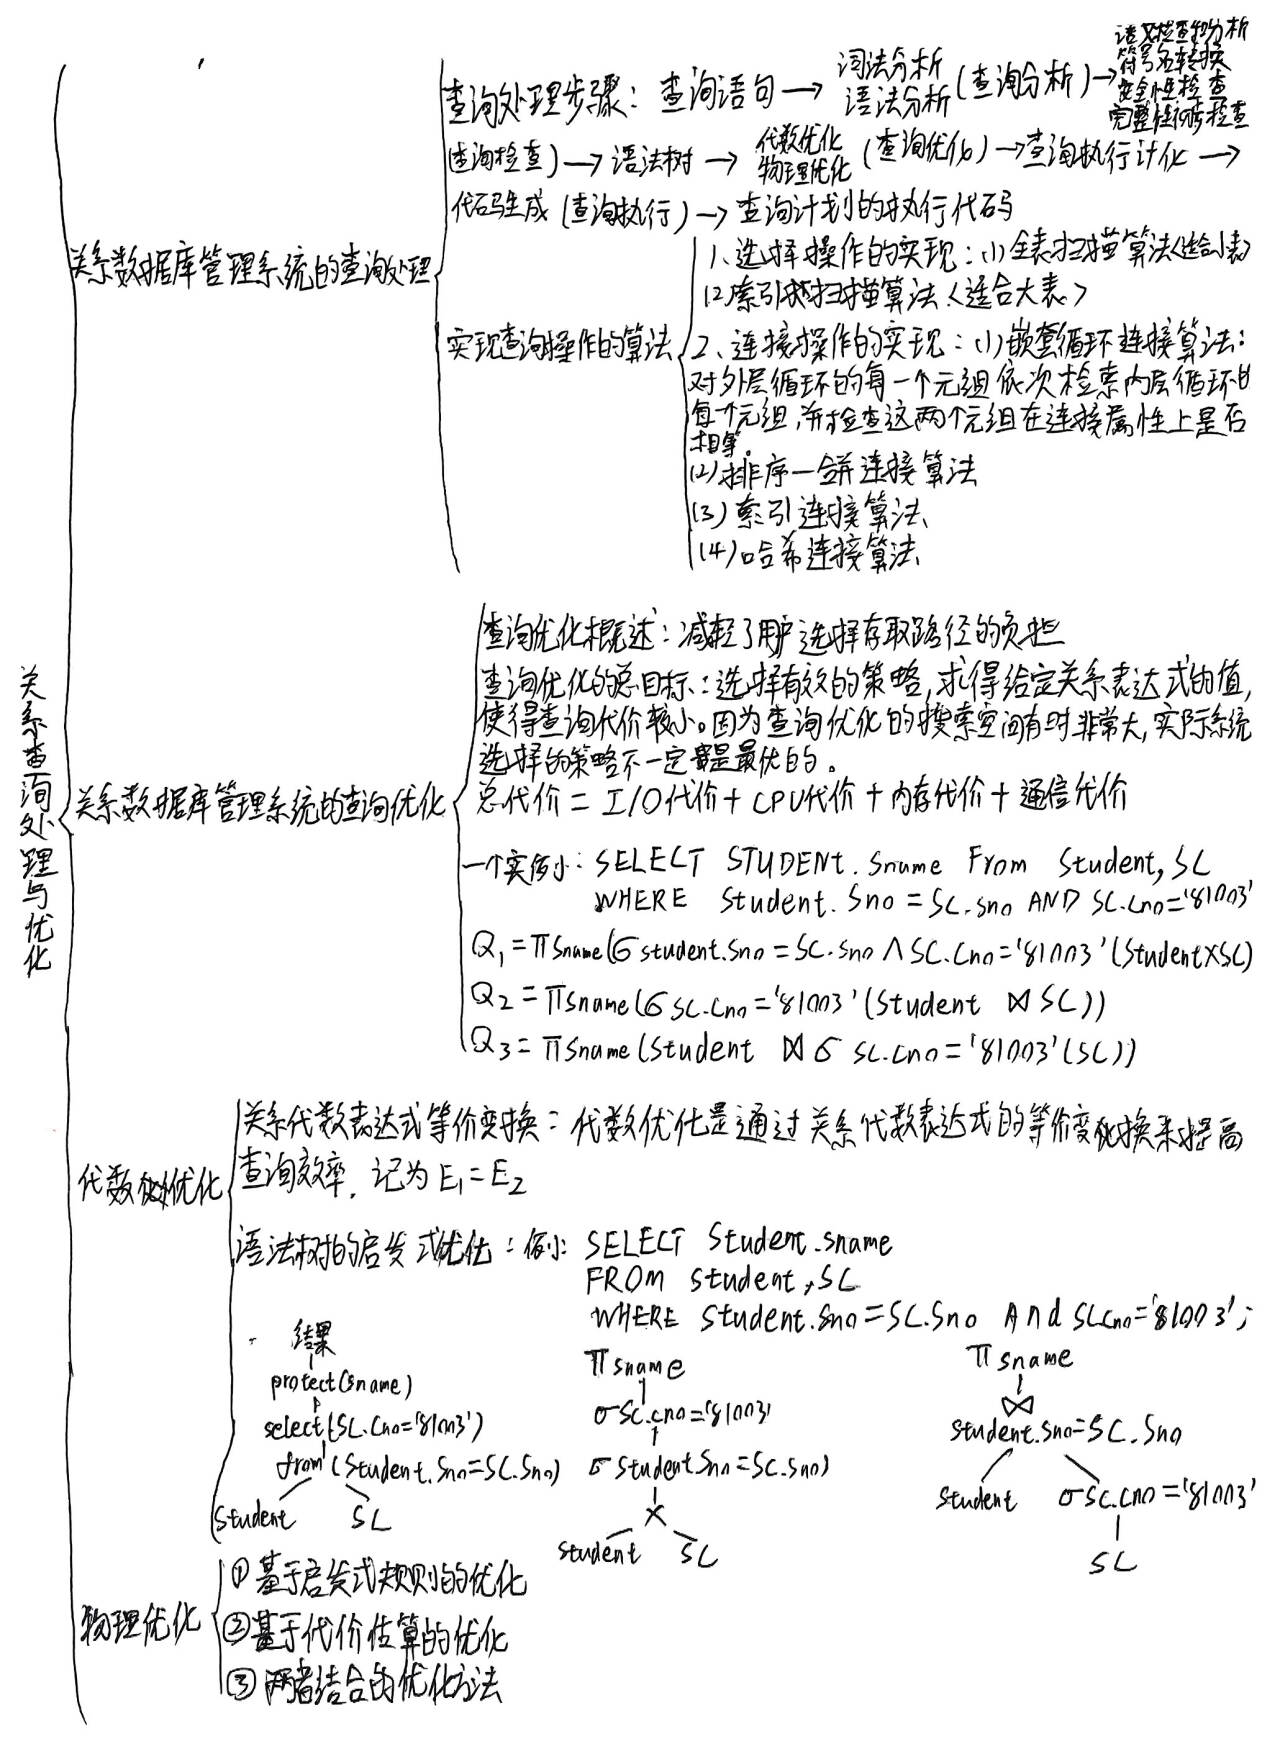 关系查询处理与优化
关系数据库管理系统的查询处理
查询处理步骤：查询语句→词法分析 语法分析(查询分析)→语义检查和分析 符号名转换 安全性检查 完整性初步检查
(查询检查)→语法树→代数优化 物理优化(查询优化)→查询执行计化→
代码生成(查询执行)→查询计划的执行代码
实现查询操作的算法
1、选择操作的实现：(1)全表扫描算法<适合小表>
(2)索引扫描算法<适合大表>
2、连接操作的实现：(1)嵌套循环连接算法：
对外层循环的每一个元组依次检索内层循环的
每一个元组，并检查这两个元组在连接属性上是否
相等。
(2)排序一合并连接算法
(3)索引连接算法
(4)哈希连接算法
关系数据库管理系统的查询优化
查询优化概述：减轻了用户选择存取路径的负担
查询优化的总目标：选择有效的策略，求得给定关系表达式的值，
使得查询代价较小。因为查询优化的搜索空间有时非常大，实际系统
选择的策略不一定是最优的。
总代价=I/O代价+CPU代价+内存代价+通信代价
一个实例：SELECT STUDENT.Sname From Student,SC
WHERE Student.Sno=SC.sno AND SC.Cno='81003'
Q₁=πSname(σstudent.Sno=SC.Sno∧SC.Cno='81003'(Student×SC)
Q₂=πSname(σSC.Cno='81003'(Student ⋈ SC))
Q₃=πSname(Student ⋈ σ SC.Cno='81003'(SC))
代数优化
关系代数表达式等价变换：代数优化是通过关系代数表达式的等价变换来提高
查询效率，记为E₁=E₂
语法树的启发式优化：例：SELECT Student.sname
FROM student,SC
WHERE Student.Sno=SC.Sno And SC.Cno='81003';
结果
protect(sname)
select(SC.Cno='81003')
from(Student.Sno=SC.Sno)
Student SC
πsname
σSC.cno='81003'
σStudent.Sno=SC.Sno)
×
Student SC
πsname
⋈
Student.Sno=SC.Sno
Student σSC.Cno='81003'
SC
物理优化
①基于启发式规则的优化
②基于代价估算的优化
③两者结合的优化方法